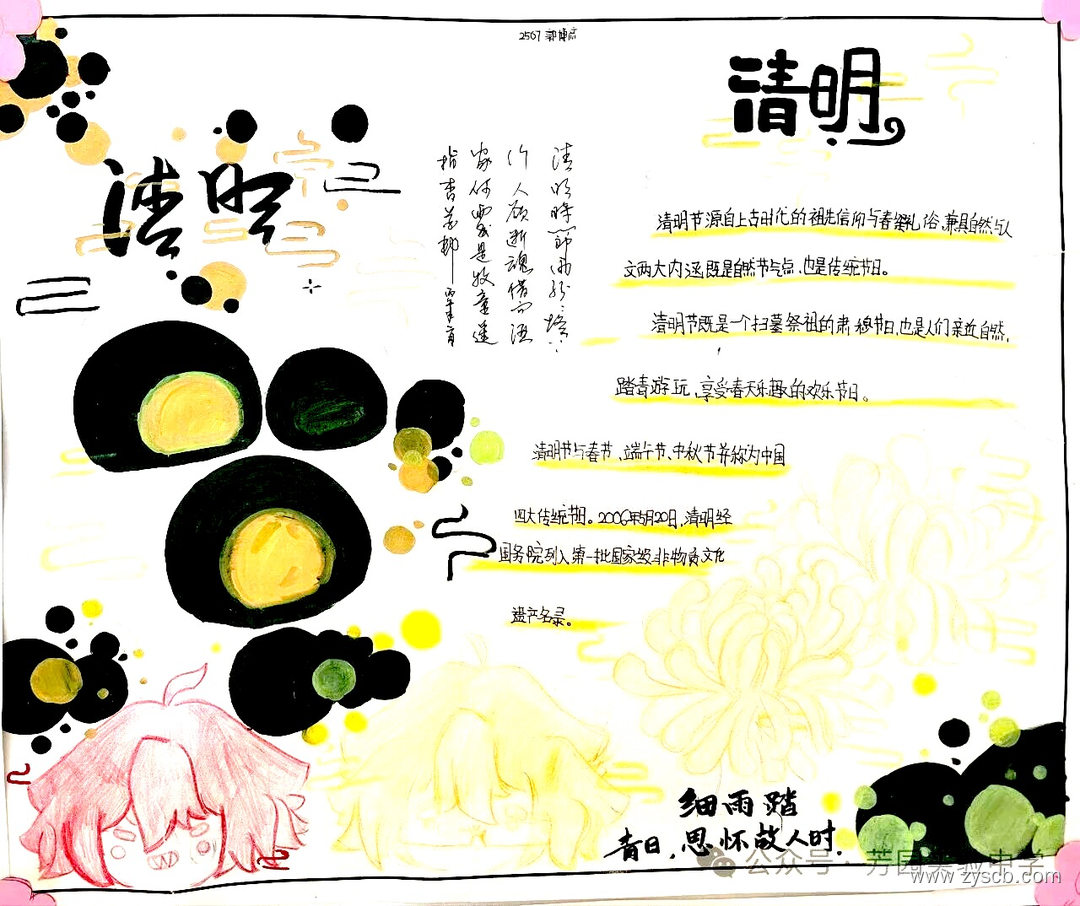 清明
清明
清明时节雨纷纷
行人欲断魂借问酒
家何处是牧童遥
指杏花村
清明节源自上古时代的祖先信仰与春祭礼俗,兼具自然与人
文两大内涵,既是自然节气点,也是传统节日。
清明节既是一个扫墓祭祖的肃穆节日,也是人们亲近自然,
踏青游玩,享受春天乐趣的欢乐节日。
清明节与春节、端午节、中秋节并称为中国
四大传统节日。2006年5月20日,清明经
国务院列入第一批国家级非物质文化
遗产名录。
细雨踏
青日,思怀故人时.
公众号·芳园实验中学
www.zyscb.com